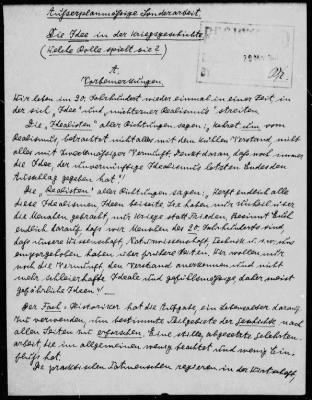 Außerplanmäßige Sonderarbeit.
Die Idee in der Kriegsgeschichte
(Welche Rolle spielt sie?)
A.
Vorbemerkungen.
Wir leben im 20. Jahrhundert wieder einmal in einer Zeit, in
der sich „Idee" und „nüchterner Realismus" streiten.
Die „Idealisten" aller Richtungen sagen: kehret um vom
Realismus, betrachtet nicht alles mit dem kühlen Verstand, nicht
alles mit Vernunft. Denket daran, daß noch immer
die Idee, der unvernünftige Idealismus letzten Endes den
Ausschlag gegeben hat!
Die „Realisten" aller Richtungen sagen: Werft endlich alle
diese Idealismen, Ideen beiseite. Sie haben nur Unheil über
die Menschen gebracht, nur Kriege statt Frieden. Besinnt Euch
endlich darauf, daß wir Menschen des 20. Jahrhunderts sind,
daß unsere Wissenschaft, Naturwissenschaft, Technik u.s.w. uns
emporgehoben haben über frühere Zeiten. Wir wollen nur
noch die Vernunft, den Verstand anerkennen und nicht
mehr schleierhafte Ideale und gefühlsmäßige, daher meist
gefährliche Ideen!
Der Fach-Historiker hat die Aufgabe, ein Leben darauf
zu verwenden, um bestimmte Teilgebiete der Geschichte nach
allen Seiten zu erforschen. Eine stille, Gelehrten-
arbeit, die im allgemeinen wenig beachtet und wenig Ein-
fluß hat.
Die praktischen Tatmenschen regieren in der Wirtschaft,